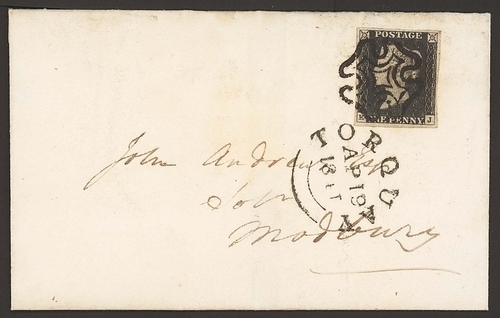 POSTAGE
ONE PENNY
J
TORQUAY
AP 19
1841
John Andrews Esq
Modbury